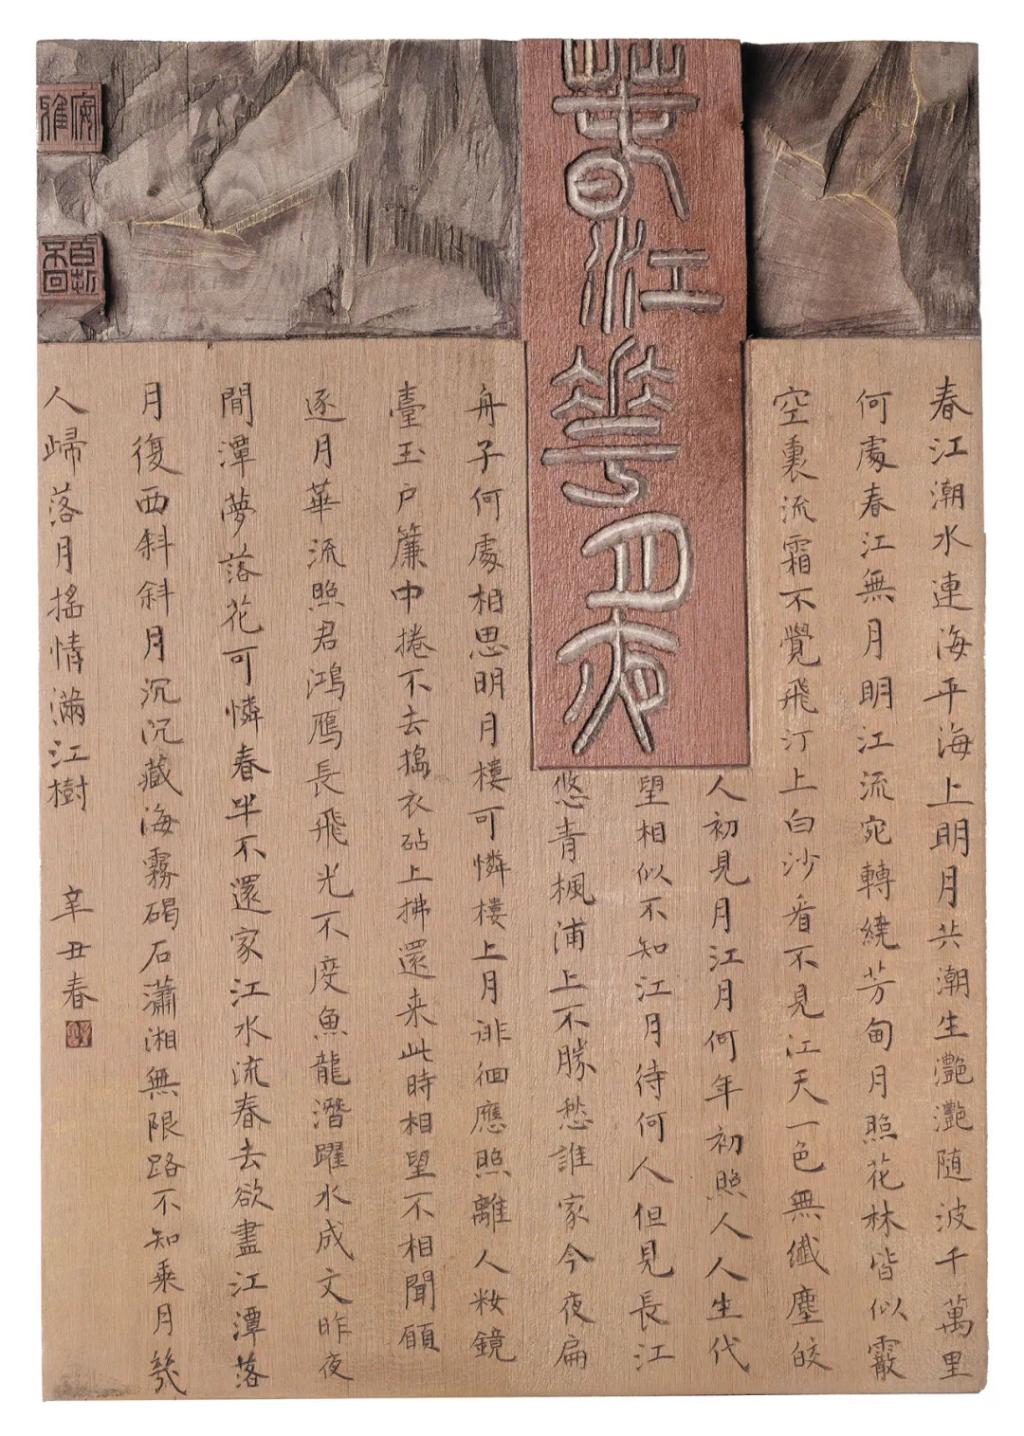 春江花月夜
春江潮水連海平海上明月共潮生灔灔随波千萬里
何處春江無月明江流宛轉繞芳甸月照花林皆似霰
空裏流霜不覺飛汀上白沙看不見江天一色無纖塵皎
人初見月江月何年初照人人生代
望相似不知江月待何人但見長江
悠青楓浦上不勝愁誰家今夜扁
舟子何處相思明月樓可憐樓上月徘徊應照離人籹鏡
臺玉戶簾中捲不去搗衣砧上拂還来此時相望不相聞願
逐月華流照君鴻雁長飛光不度魚龍潛躍水成文昨夜
閒潭夢落花可憐春半不還家江水流春去欲盡江潭落
月復西斜斜月沉沉藏海霧碣石瀟湘無限路不知乘月幾
人歸落月搖情滿江樹 辛丑春